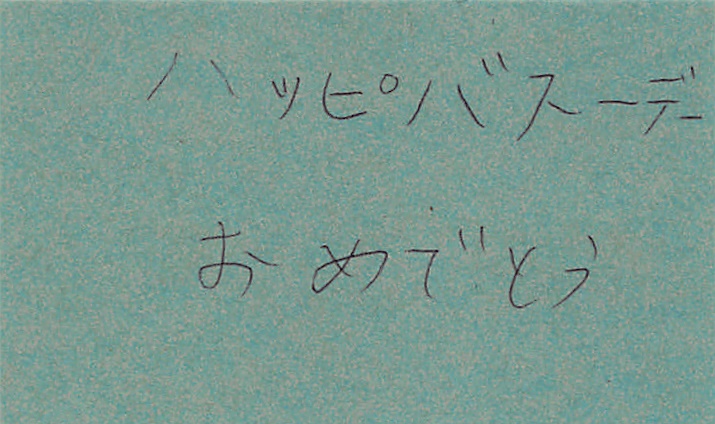 ハッピバスーデー
おめでとう